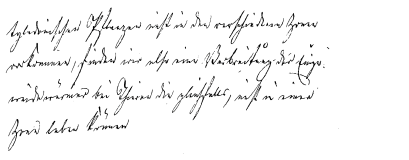 Pflanzen nicht in den verschiedenen Zonen
vorkommen, finden wir also eine Verbreitung der
bei Thieren die gleichfalls, nicht in einer
Zone leben können